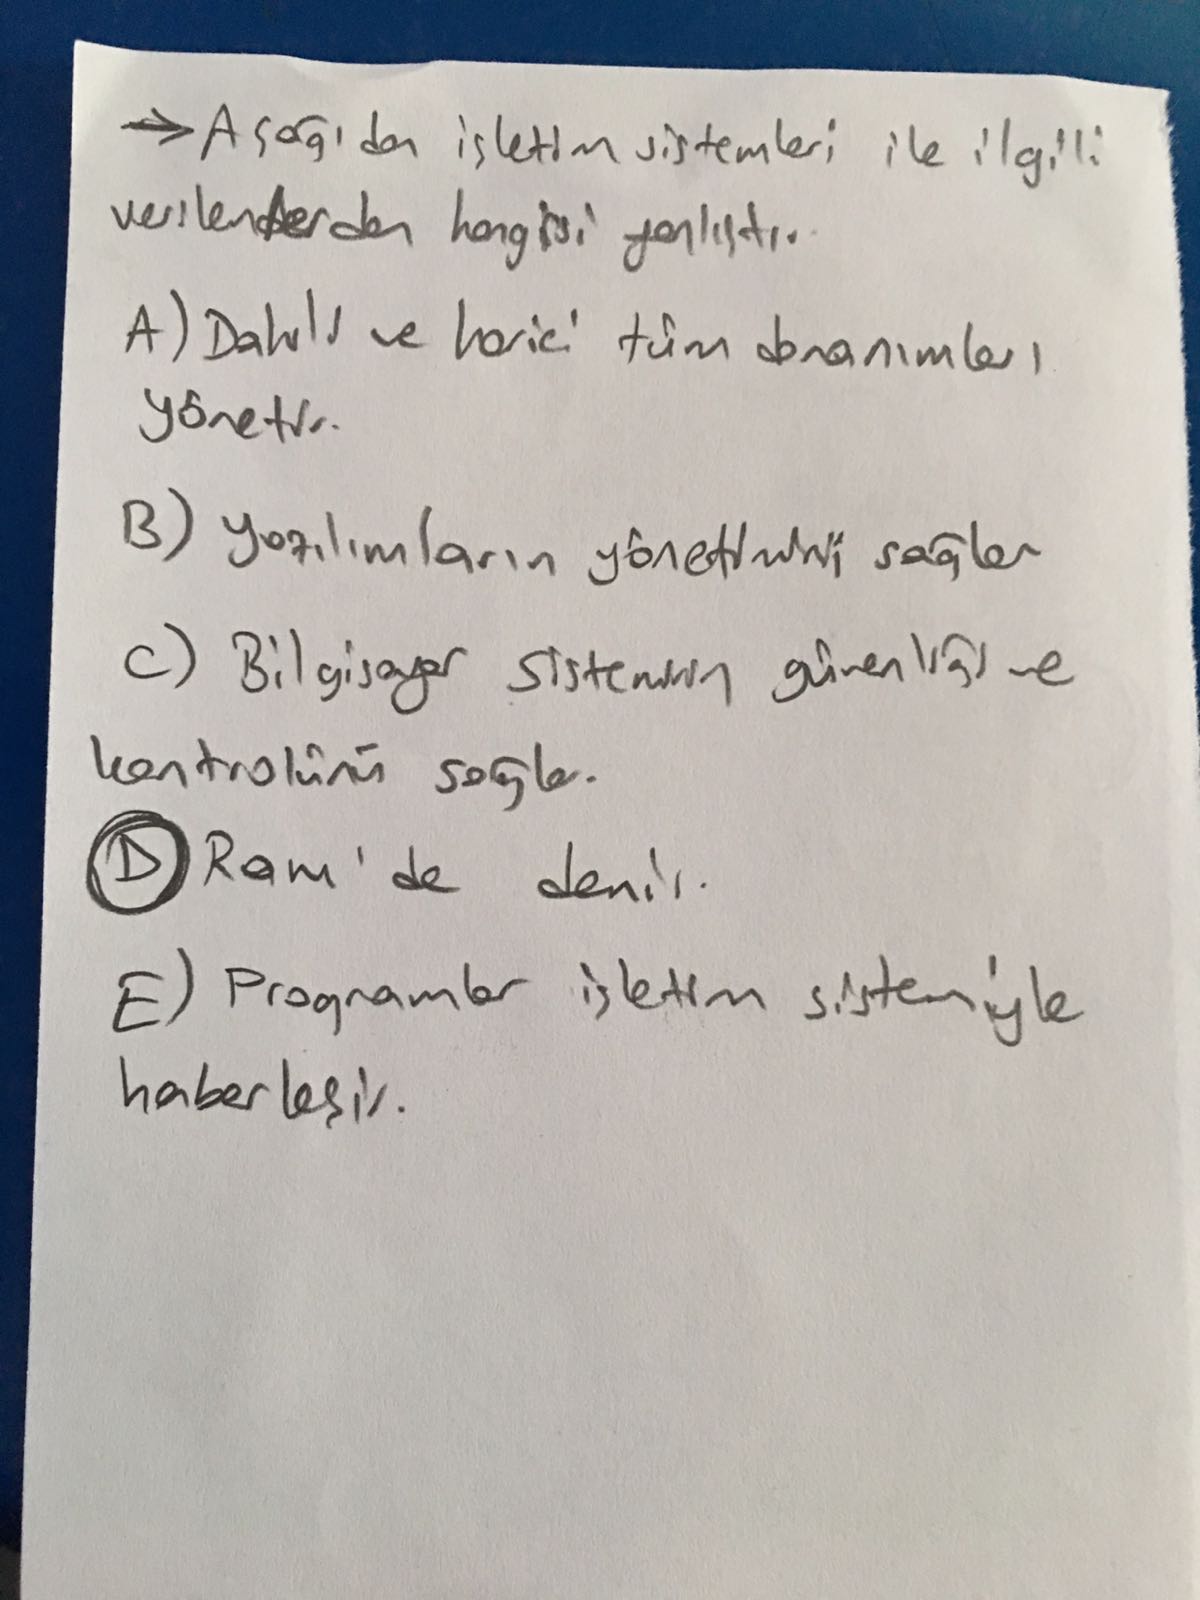 → Aşağıdan işletim sistemleri ile ilgili
verilenlerden hangisi yanlıştır.
A) Dahili ve harici tüm donanımları
yönetir.
B) Yazılımların yönetimini sağlar
C) Bilgisayar sisteminin güvenliği ve
kontrolünü sağlar.
D) Ram'de denir.
E) Programlar işletim sistemiyle
haberleşir.